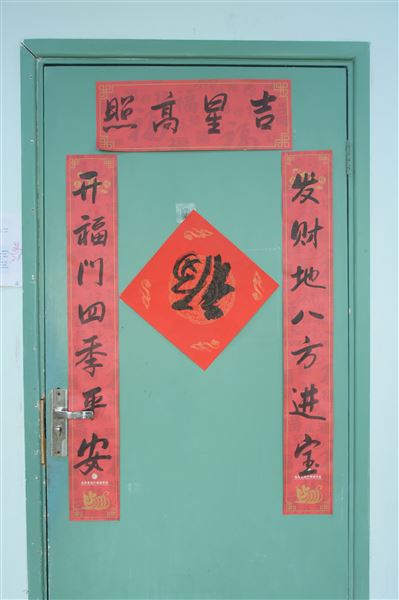 吉星高照
发财地八方进宝
开福门四季平安
福